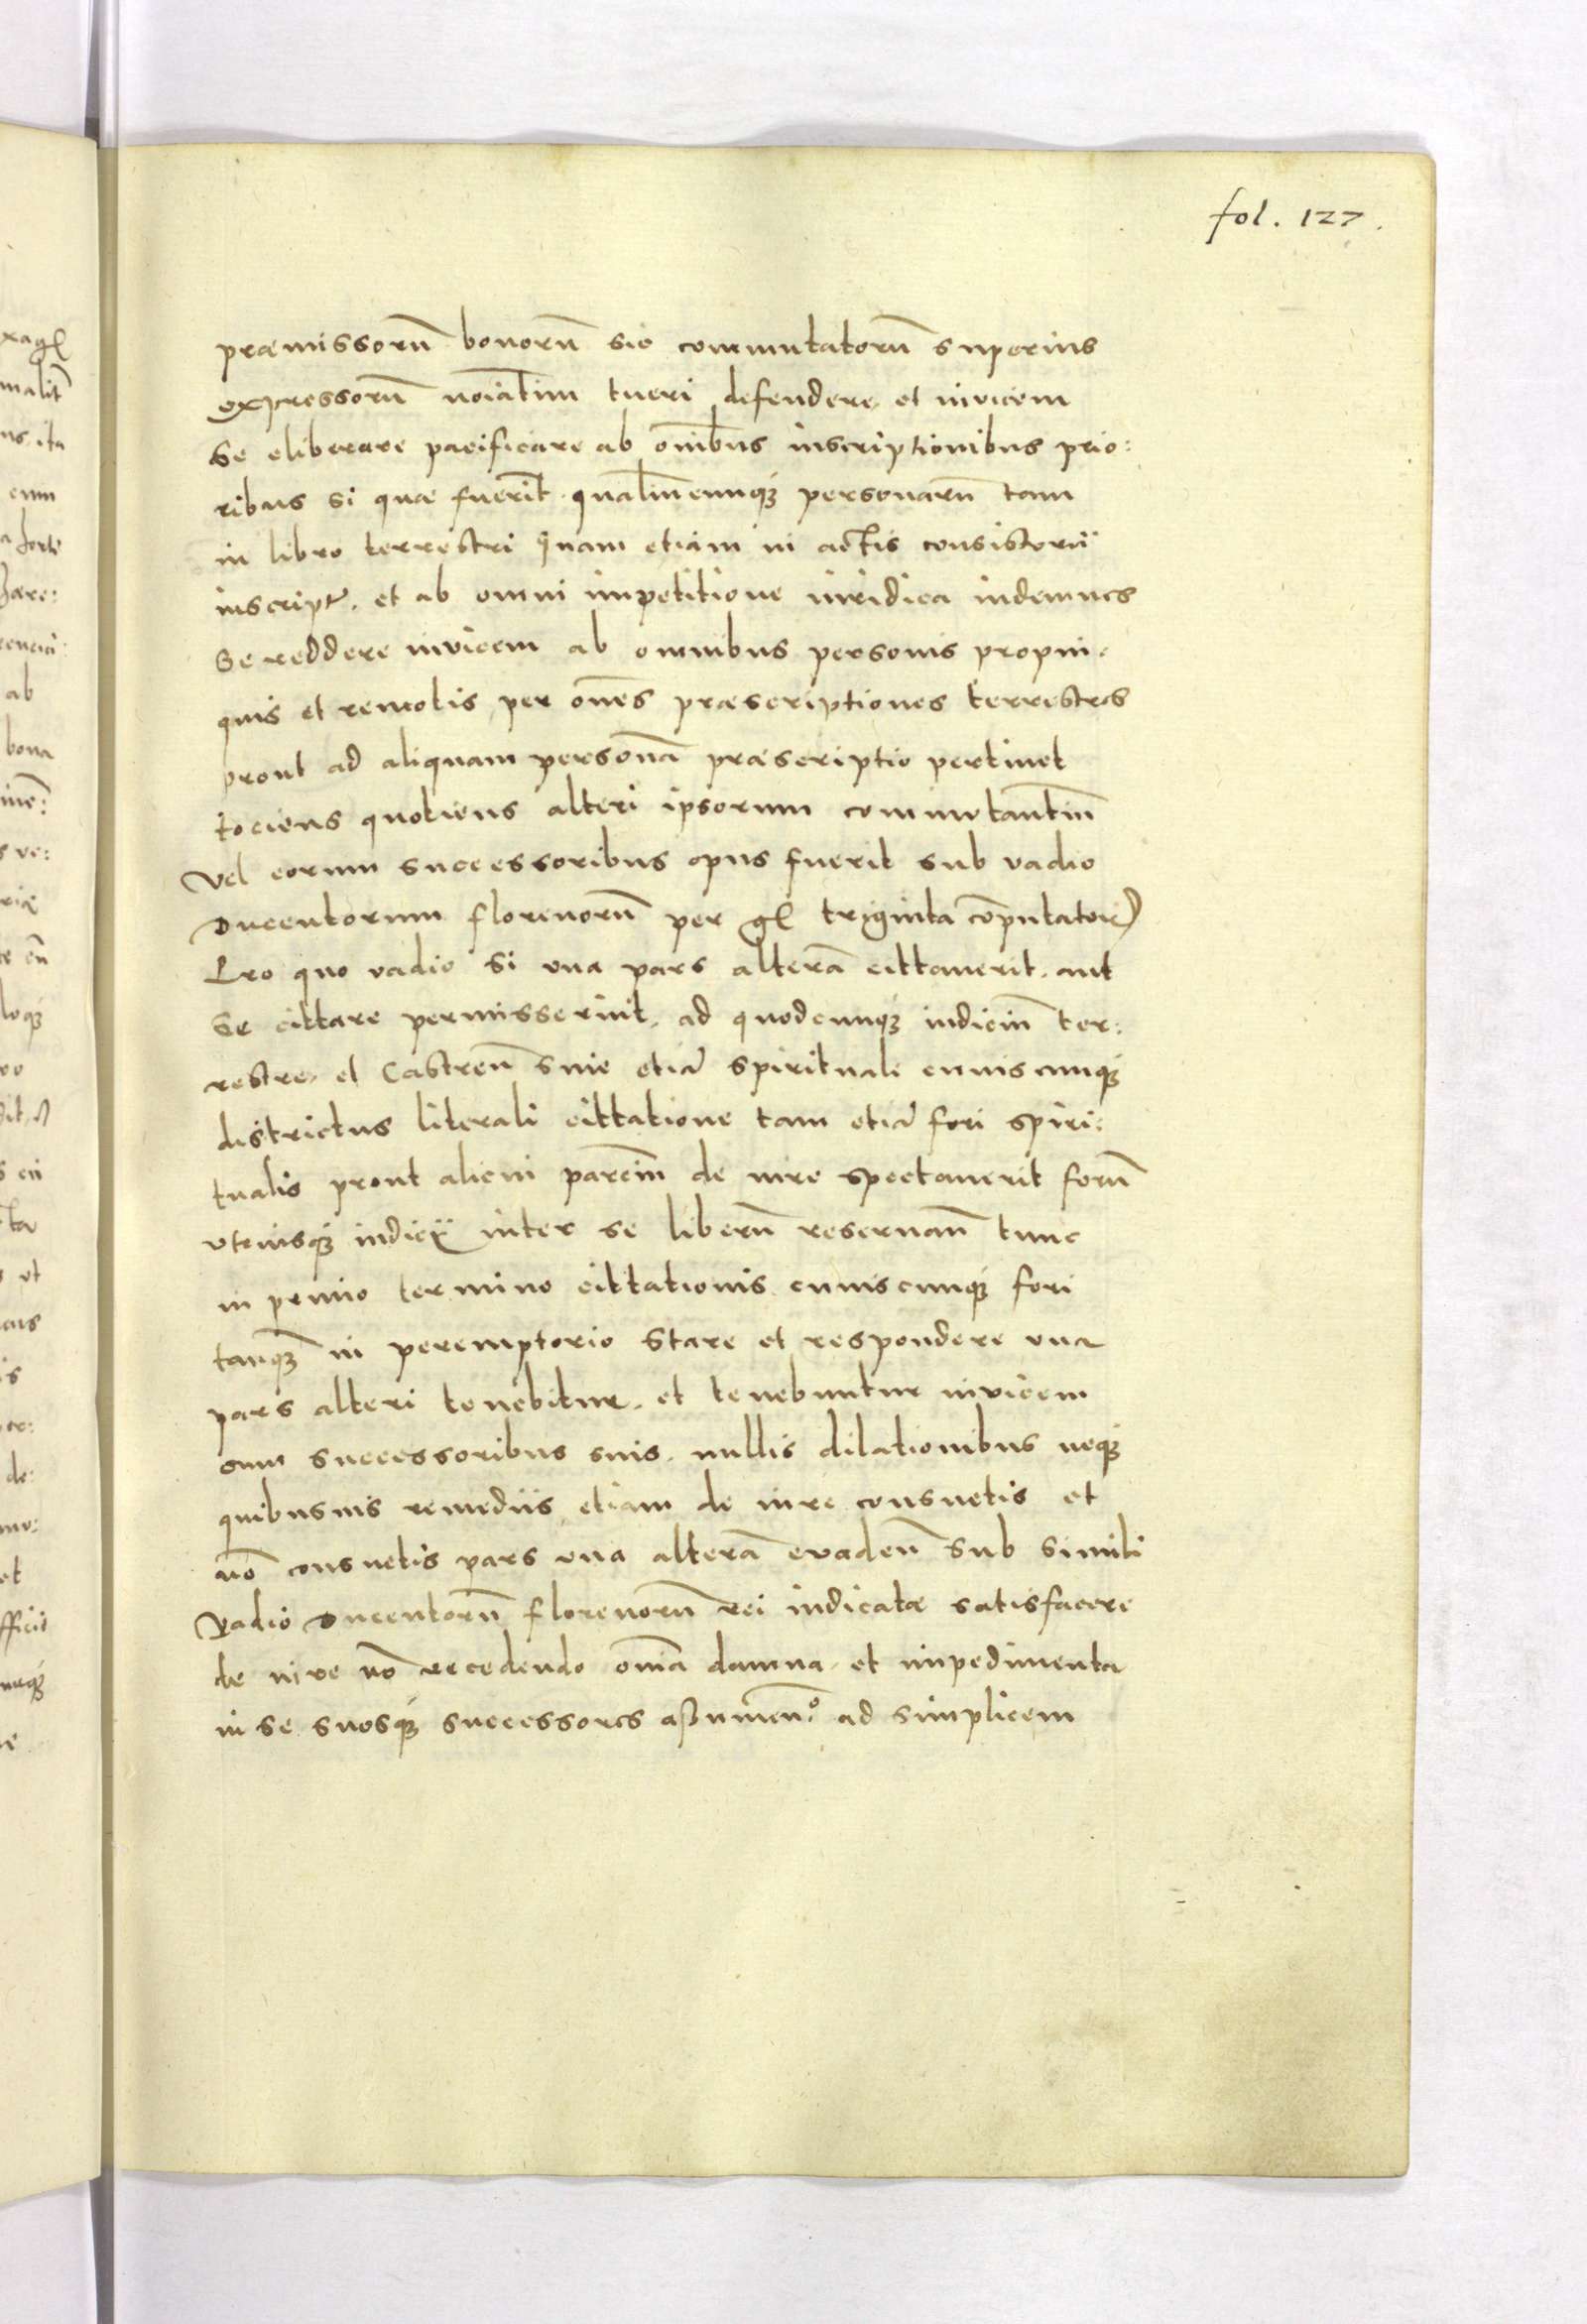 fol. 127.
præmissorũ bonorũ sic commutatorũ superius
expressorũ noiãtim tueri defendere, et invicem
se eliberare pacificare ab omĩbus inscriptionibus prio:
ribus si quæ fuerĩt qualiũcunqȝ personarũ tam
in libro terrestri quam etiam in actis consistorii
inscript. et ab omni impetitione iuridica indemnes
se reddere invicem ab omnibus personis propin:
quis et remotis, per omẽs præscriptiones terrestres
prout ad aliquam personã præscriptio pertinet
tociens quotiens alteri ipsorum commutantiũ
vel eorum successoribus opus fuerit sub vadio
Ducentorum florenorũ per gl triginta cõputator
Pro quo vadio si una pars alterã cittaverit. aut
se cittare permisserint, ad quodcunqȝ iudiciũ ter:
restre, et Castren̄ sive etiã spirituale cuiuscunqȝ
districtus literali cittatione tam etiã fori spiri:
tualis prout alicui parciũ de iure spectaverit forũ
utriusqȝ iudicii inter se liberũ reservan̄ tunc
in primo termino cittationis cuiuscunqȝ fori
tanqȝ in peremptorio stare et respondere una
pars alteri tenebitur, et tenebuntur invicem
cum successoribus suis, nullis dilationibus neqȝ
quibusvis remediis etiam de iure consuetis et
nõ consuetis pars una alterã evaden̄ sub simili
Vadio Ducentorũ florenorũ rei iudicatæ satisfacere
de iure nõ recedendo omĩa damna et impedimenta
in se suosqȝ successores aßumen̄. ad simplicem